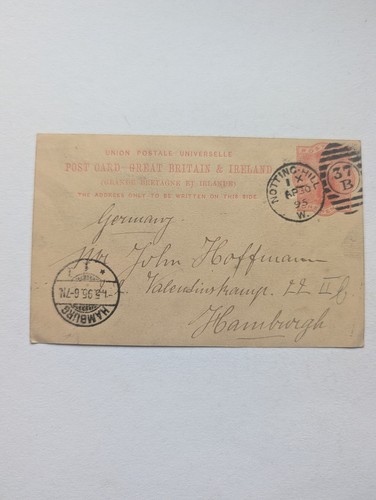 UNION POSTALE UNIVERSELLE
POST CARD—GREAT BRITAIN & IRELAND
(GRANDE BRETAGNE ET IRLANDE)
THE ADDRESS ONLY TO BE WRITTEN ON THIS SIDE.
NOTTING-HILL
X
AP30
95
W.
37
B
Germany.
John Hoffmann
Valentinskamp. 22 II b
Hamburgh
HAMBURG
1.5.95.6-7N.